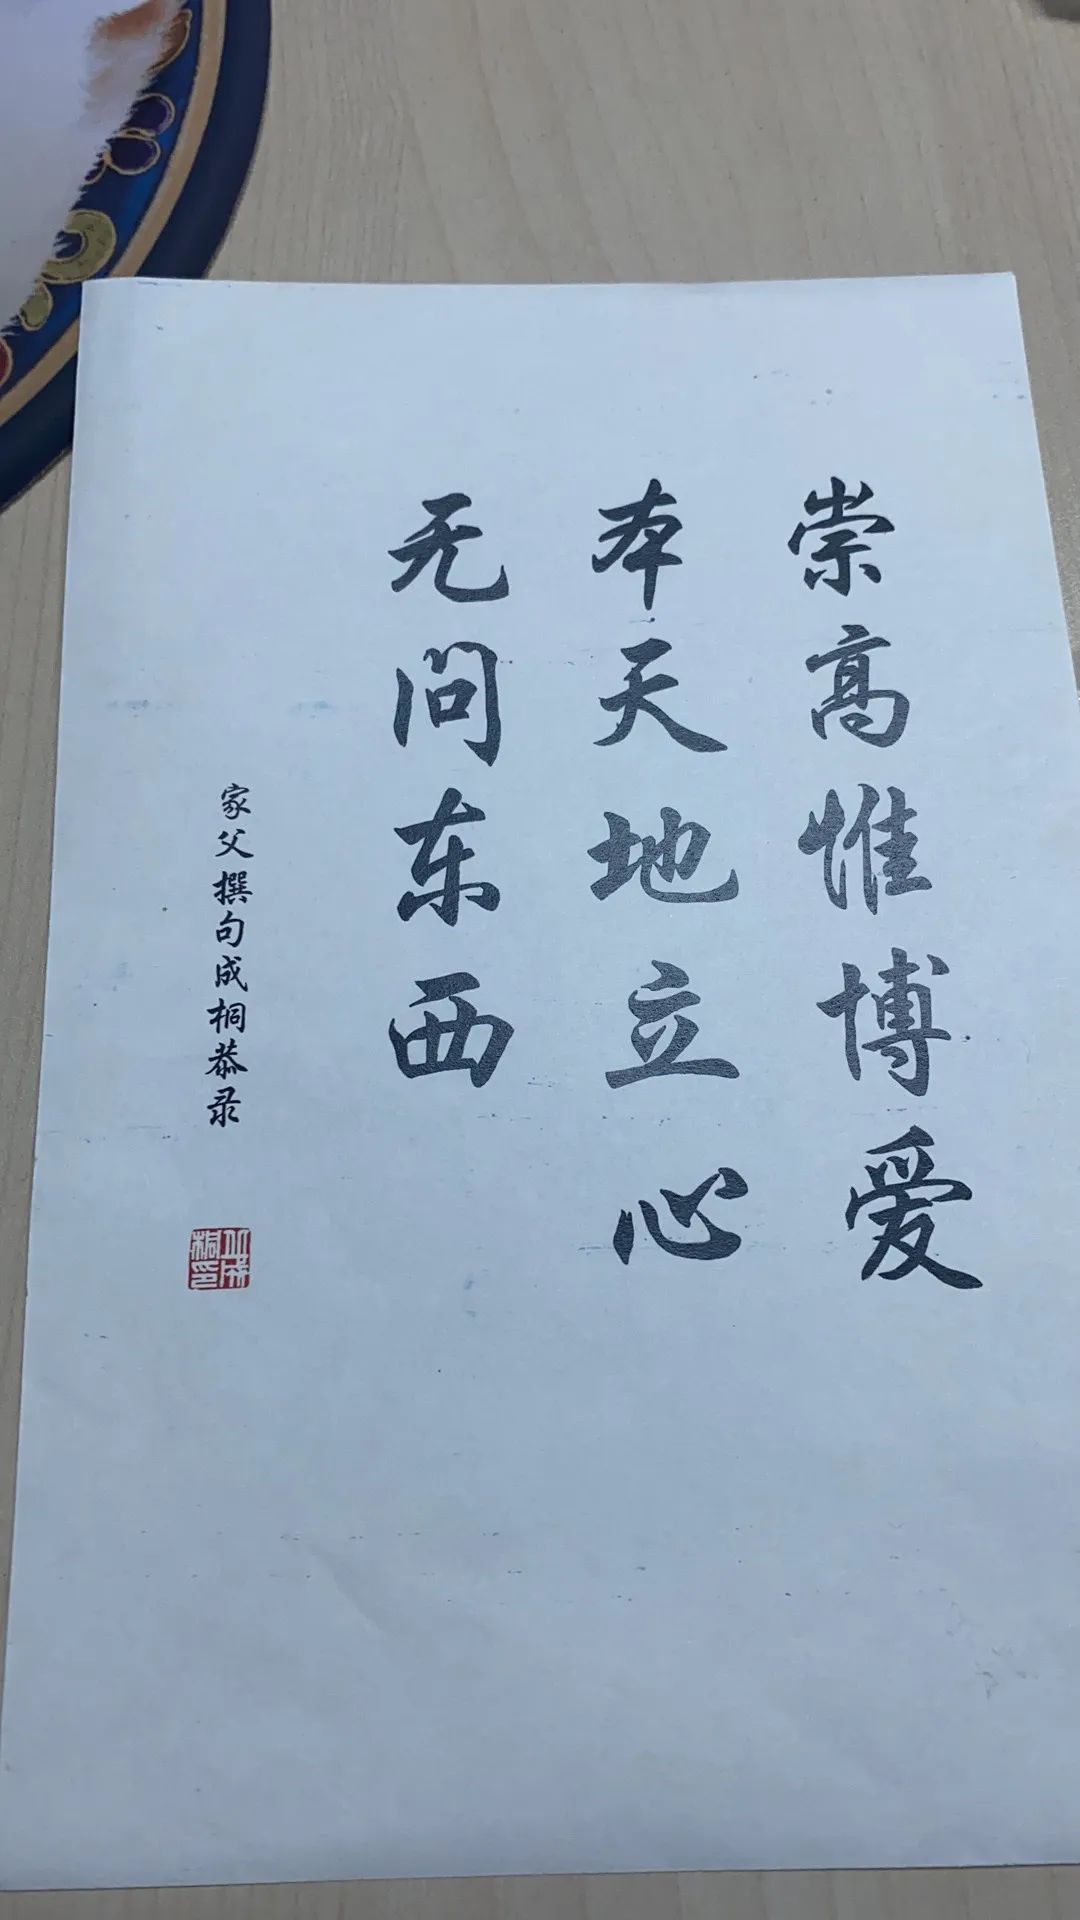 崇高惟博爱
本天地立心
无问东西
家父撰句成桐恭录
丘成桐印